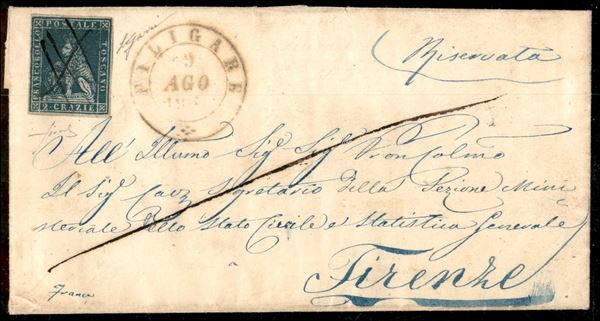 FRANCOBOLLO POSTALE TOSCANO
2 CRAZIE
FILIGARE
9
AGO
Riservata
All' Illumo Sigr Sigr Pron Colmo
Il Sigr Cavr Segretario della Sezione Mini
steriale dello Stato Civile e Statistica Generale
Firenze
Franca